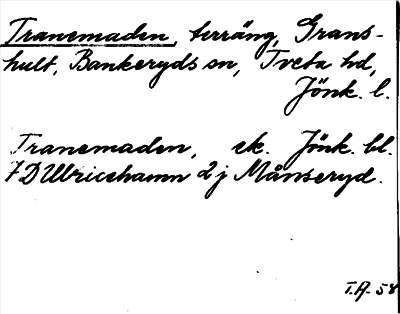 Tranemaden, terräng, Grans-
hult, Bankeryds sn, Tveta hd,
Jönk. l.
Tranemaden, ek. Jönk. bl.
7D Ulricehamn 2j Månseryd.
T.A. 58